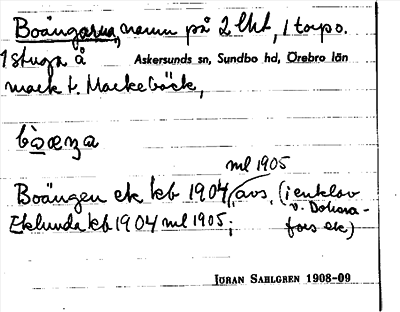 Boängarna, namn på 2 lht, 1 torpo.
1 stuga å Askersunds sn, Sundbo hd, Örebro län
mark t. Mackebäck,
bòæŋa
ml 1905
Boängen ek kb 1904, avs. (i enklav
Eklunda kb 1904 ml 1905; v. Dohna-
fors ek)
JÖRAN SAHLGREN 1908-09